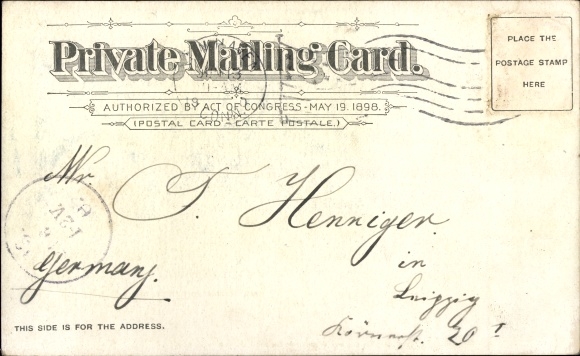 Private Mailing Card.
AUTHORIZED BY ACT OF CONGRESS - MAY 19. 1898.
(POSTAL CARD - CARTE POSTALE.)
PLACE THE
POSTAGE STAMP
HERE
CONN.
Mr. T. Henniger
in
Germany.
Leipzig
20 I
THIS SIDE IS FOR THE ADDRESS.